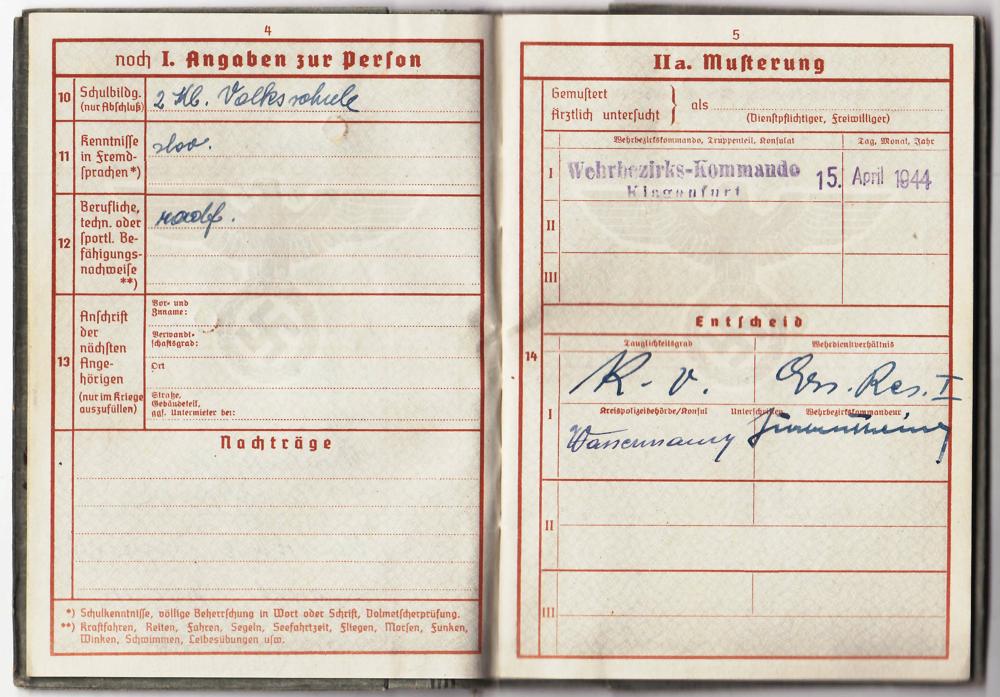 4
noch I. Angaben zur Person
10
Schulbildg.
(nur Abschluß)
2 Kl. Volksschule
11
Kenntnisse
in Fremd-
sprachen*)
slow.
12
Berufliche,
techn. oder
sportl. Be-
fähigungs-
nachweise
**)
radf.
13
Anschrift
der
nächsten
Ange-
hörigen
(nur im Kriege
auszufüllen)
Vor- und
Zuname:
Verwandt-
schaftsgrad:
Ort
Straße,
Gebäudeteil,
ggf. Untermieter bei:
Nachträge
*) Schulkenntnisse, völlige Beherrschung in Wort oder Schrift, Dolmetscherprüfung.
**) Kraftfahren, Reiten, Fahren, Segeln, Seefahrtzeit, Fliegen, Morsen, Funken,
Winken, Schwimmen, Leibesübungen usw.
5
II a. Musterung
Gemustert
Ärztlich untersucht } als
(Dienstpflichtiger, Freiwilliger)
Wehrbezirkskommando, Truppenteil, Konsulat
Tag, Monat, Jahr
I
Wehrbezirks-Kommando
Klagenfurt
15. April 1944
II
III
Entscheid
14
Tauglichkeitsgrad
Wehrdienstverhältnis
K. v.
Ers. Res. I
I
Kreispolizeibehörde/Konsul
Unterschriften
Wehrbezirkskommandeur
Wassermann
II
III